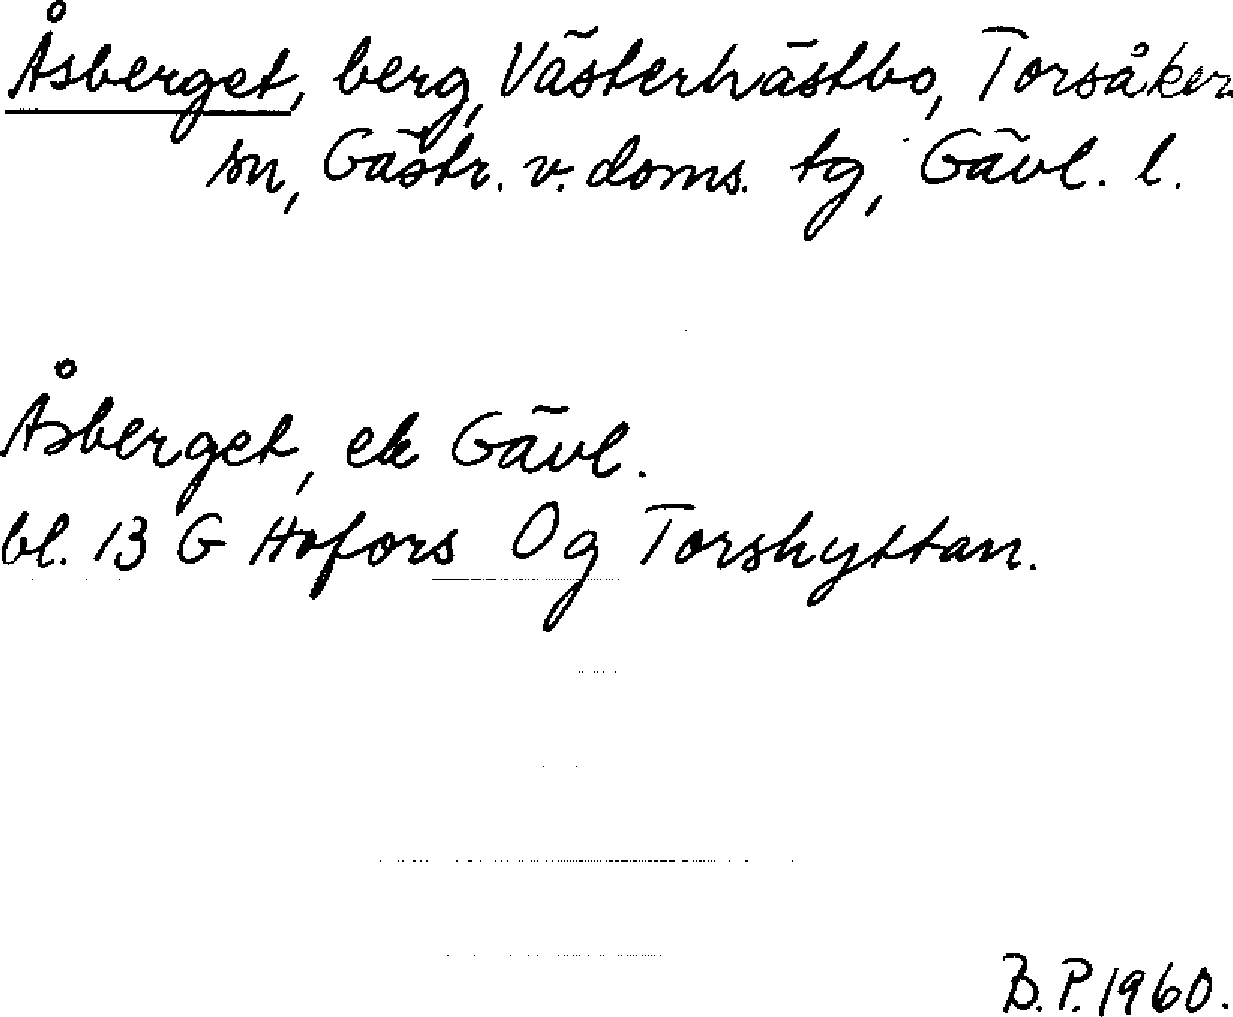 Åsberget, berg, Västerhästbo, Torsåkers
sn, Gästr. v. doms. tg, Gävl. l.
Åsberget, ek Gävl.
bl. 13 G Hofors Og Torshyttan.
B.P. 1960.